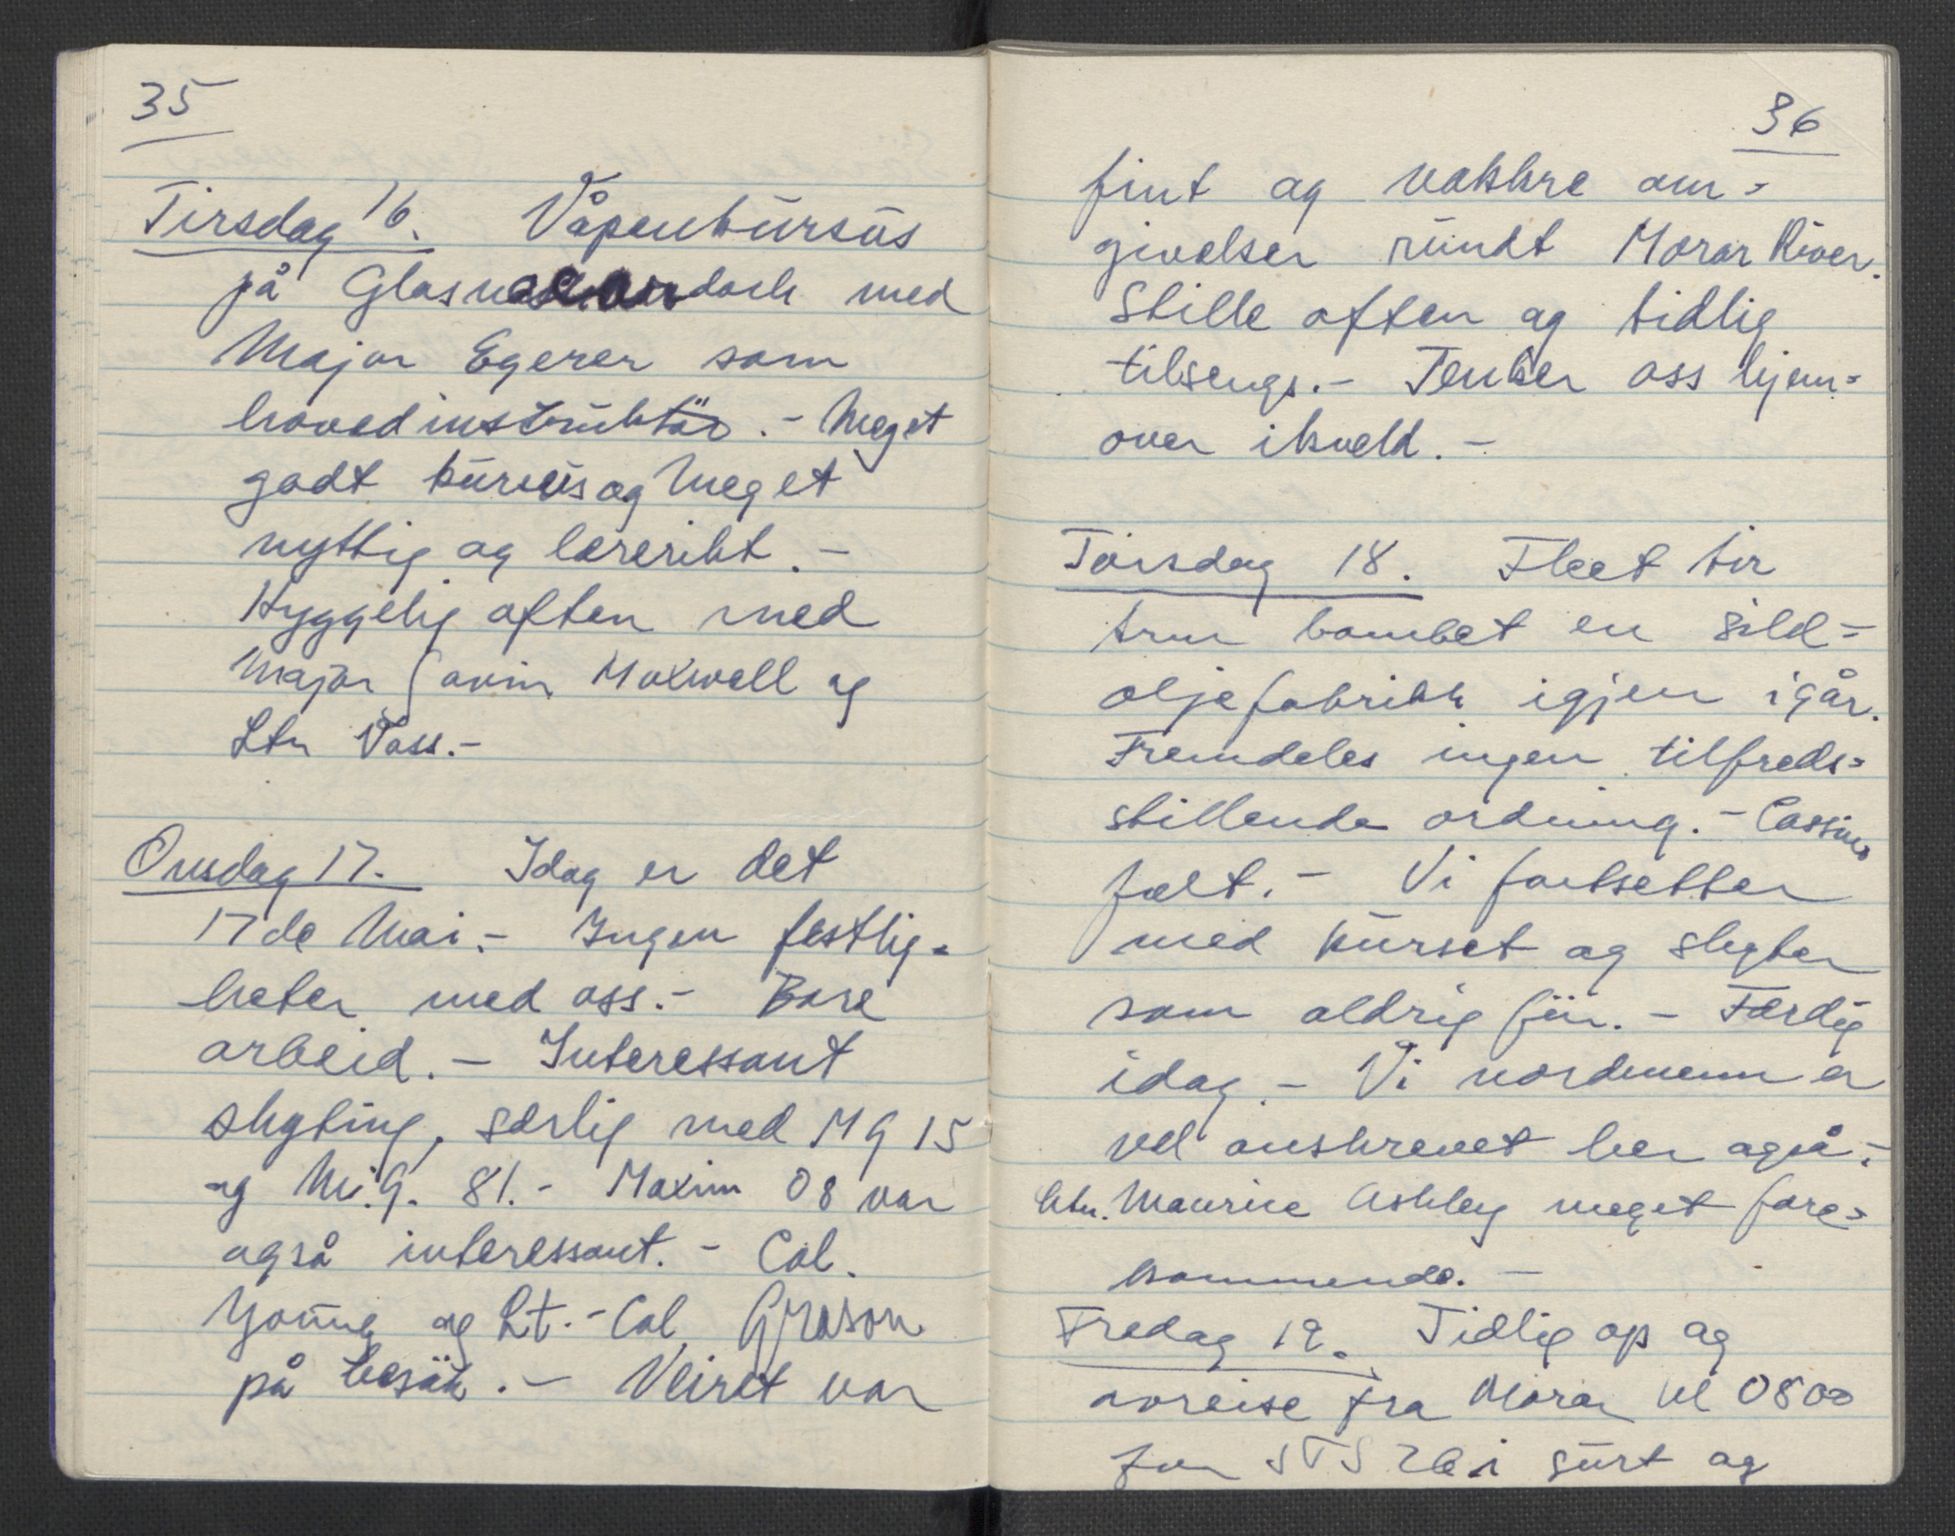 35
Tirsdag 16. Våpenkursus
på Glasnacardoch med
Major Egerer som
hovedinstruktör. - Meget
godt kursus og meget
nyttig og lærerikt. -
Hyggelig aften med
Major Gavin Maxwell og
Ltn Vass. -
Onsdag 17. Idag er det
17de Mai. - Ingen festlig-
heter med oss. - Bare
arbeid. - Interessant
skyting, særlig med MG 15
og M.G. 81. - Maxim 08 var
også interessant. - Col.
Young og Lt.-Col
på besök. - Veiret var
36
fint og vakkre om-
givelser rundt Morar River.
Stille aften og tidlig
tilsengs. - Tenker oss hjem-
over ikveld. -
Torsdag 18. Fleet Air
Arm bombet en sild-
oljefabrikk igjen igår.
Fremdeles ingen tilfreds-
stillende ordning. - Cassino
falt. - Vi fortsetter
med kurset og skyter
som aldrig för. - Færdig
idag. - Vi nordmenn er
vel anskrevet her også. -
Ltn. Maurice Ashley meget fore-
kommende. -
Fredag 19. Tidlig op og
avreise fra Morar kl 0800
for STS 26 i surt og